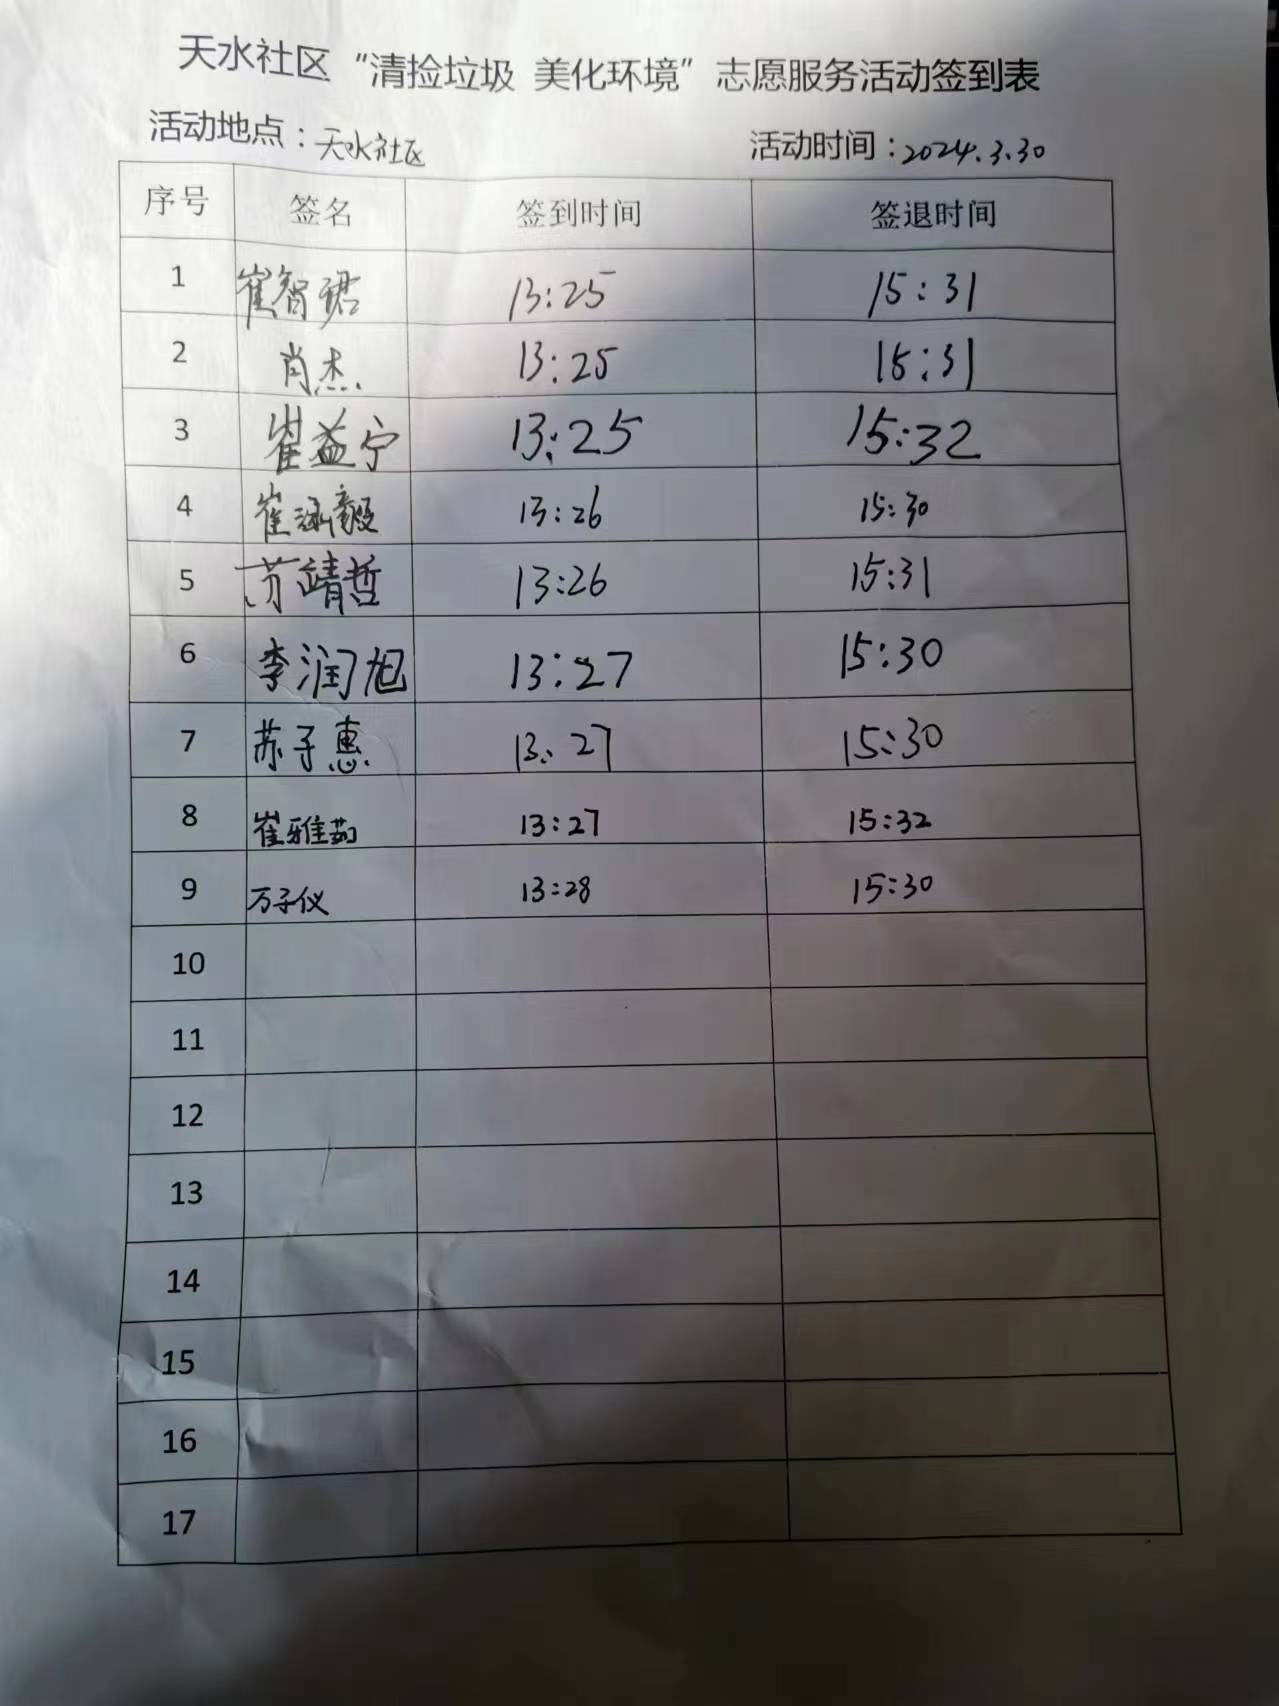 天水社区“清捡垃圾 美化环境”志愿服务活动签到表
活动地点：天水社区 活动时间：2024.3.30
序号 签名 签到时间 签退时间
1 崔智珺 13:25 15:31
2 肖杰 13:25 15:31
3 崔益宁 13:25 15:32
4 崔涵毅 13:26 15:30
5 苏靖哲 13:26 15:31
6 李润旭 13:27 15:30
7 苏子惠 13:27 15:30
8 崔雅茹 13:27 15:32
9 万子仪 13:28 15:30
10
11
12
13
14
15
16
17